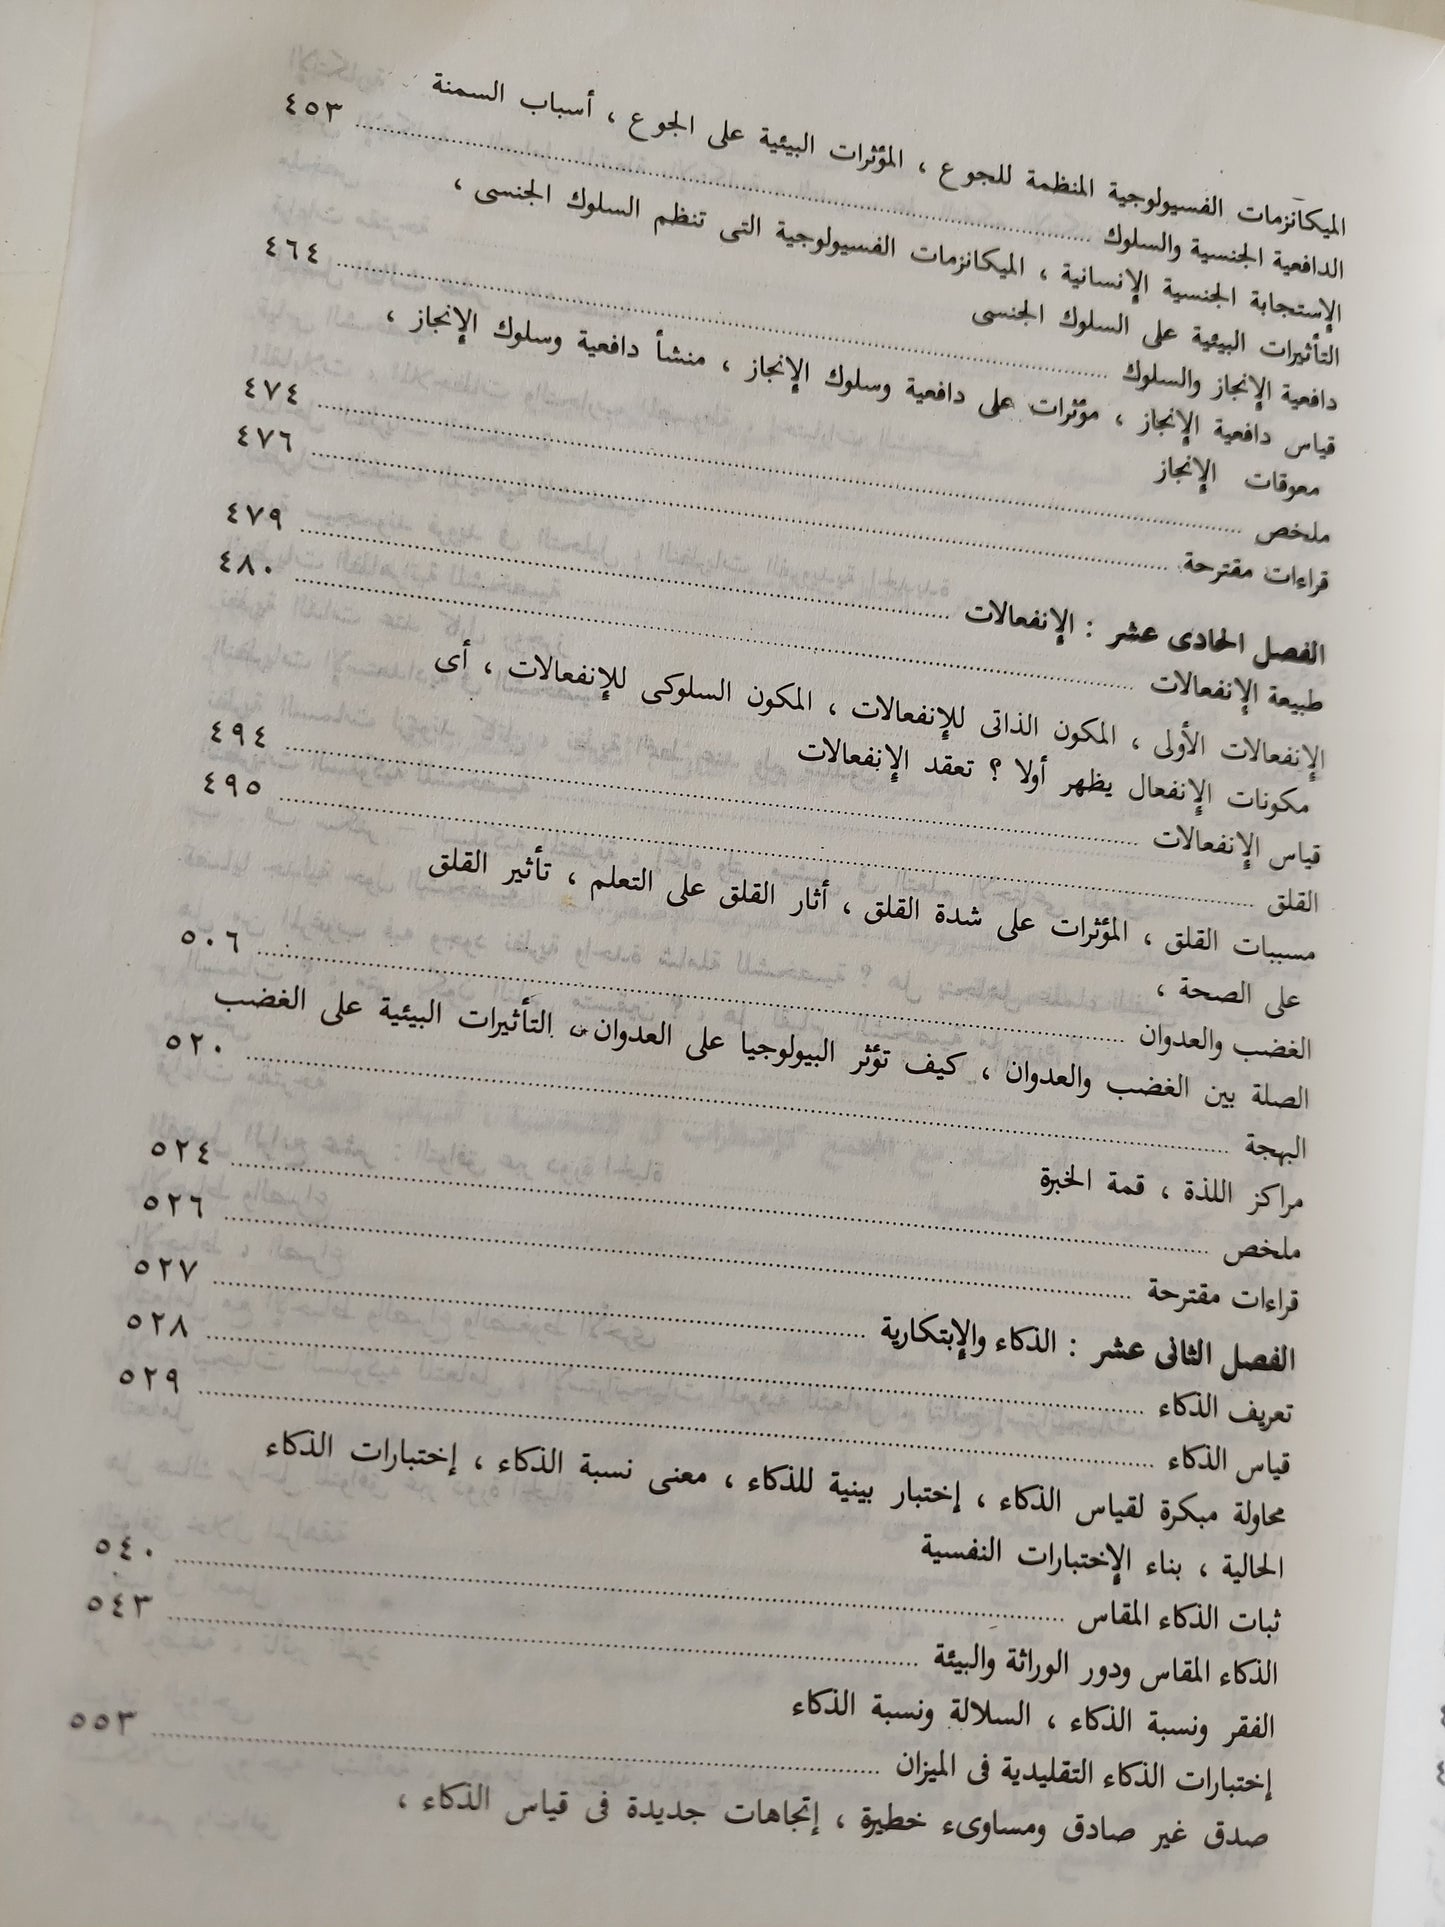 الميكانزمات الفسيولوجية المنظمة للجوع ، المؤثرات البيئية على الجوع ، أسباب السمنة
الدافعية الجنسية والسلوك ........ ٤٥٣
الإستجابة الجنسية الإنسانية ، الميكانزمات الفسيولوجية التى تنظم السلوك الجنسى ،
التأثيرات البيئية على السلوك الجنسى
دافعية الإنجاز والسلوك ........ ٤٦٤
قياس دافعية الإنجاز ، مؤثرات على دافعية وسلوك الإنجاز ، منشأ دافعية وسلوك الإنجاز ،
معوقات الإنجاز
ملخص ........ ٤٧٤
قراءات مقترحة ........ ٤٧٦
الفصل الحادى عشر : الإنفعالات ........ ٤٧٩
طبيعة الإنفعالات ........ ٤٨٠
الإنفعالات الأولى ، المكون الذاتى للإنفعالات ، المكون السلوكى للإنفعالات ، أى
مكونات الإنفعال يظهر أولا ؟ تعقد الإنفعالات
قياس الإنفعالات ........ ٤٩٤
القلق ........ ٤٩٥
مسببات القلق ، المؤثرات على شدة القلق ، أثار القلق على التعلم ، تأثير القلق
على الصحة ،
الغضب والعدوان ........ ٥٠٦
الصلة بين الغضب والعدوان ، كيف تؤثر البيولوجيا على العدوان ، التأثيرات البيئية على الغضب
البهجة ........ ٥٢٠
مراكز اللذة ، قمة الخبرة
ملخص ........ ٥٢٤
قراءات مقترحة ........ ٥٢٦
الفصل الثانى عشر : الذكاء والإبتكارية ........ ٥٢٧
تعريف الذكاء ........ ٥٢٨
قياس الذكاء ........ ٥٢٩
محاولة مبكرة لقياس الذكاء ، إختبار بينية للذكاء ، معنى نسبة الذكاء ، إختبارات الذكاء
الحالية ، بناء الإختبارات النفسية
ثبات الذكاء المقاس ........ ٥٤٠
الذكاء المقاس ودور الوراثة والبيئة ........ ٥٤٣
الفقر ونسبة الذكاء ، السلالة ونسبة الذكاء
إختبارات الذكاء التقليدية فى الميزان ........ ٥٥٣
صدق غير صادق ومساوىء خطيرة ، إتجاهات جديدة فى قياس الذكاء ،